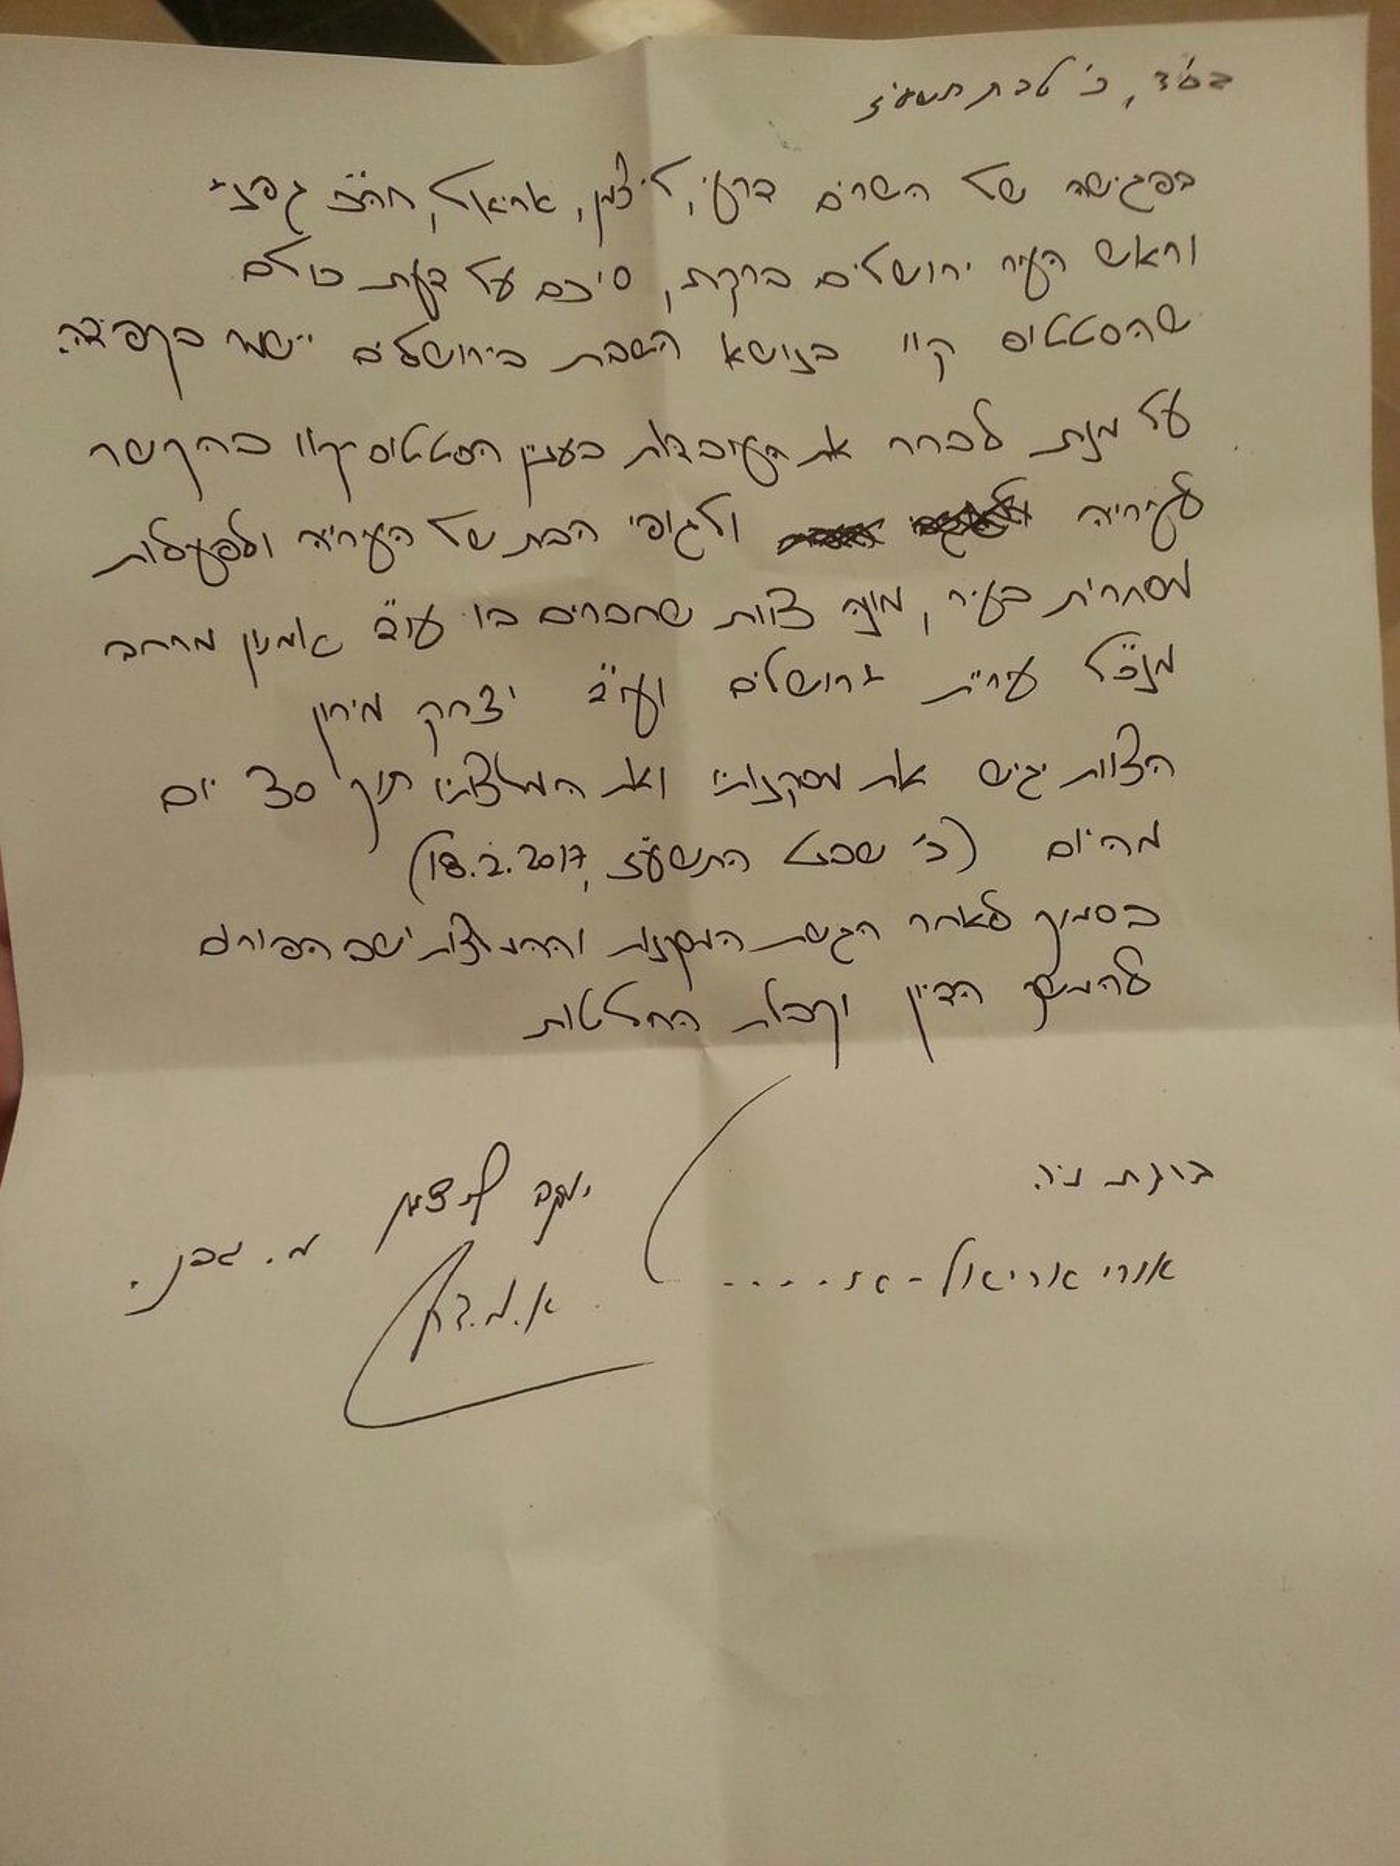 בס"ד, כ' טבת תשע"ז
בפגישה של השרים דרעי, ליצמן, אריאל, חה"כ גפני
וראש העיר ירושלים ברקת, סיכם על דעת כולם
שהסטטוס קוו בנושא השבת בירושלים יישמר בקפידה.
על מנת לברר את העובדות בעניין הסטטוס-קוו בהקשר
לעירייה ולגופי הבת של העירייה ולפעילות
מסחרית בעיר, מונה צוות שחברים בו עו"ד אמנון מרחב
מנכ"ל עיריית ירושלים ועו"ד יצחק מירון
הצוות יגיש את מסקנותיו ואת המלצותיו תוך 30 יום
מהיום (כ' שבט התשע"ז, 18.2.2017)
בסמוך לאחר הגשת המסקנות וההמלצות ישב הפורום
להמשך הדיון וקבלת החלטות
ברכת ניר
יעקב ליצמן
אורי אריאל -
מ. גפני.
א.מ.דרעי